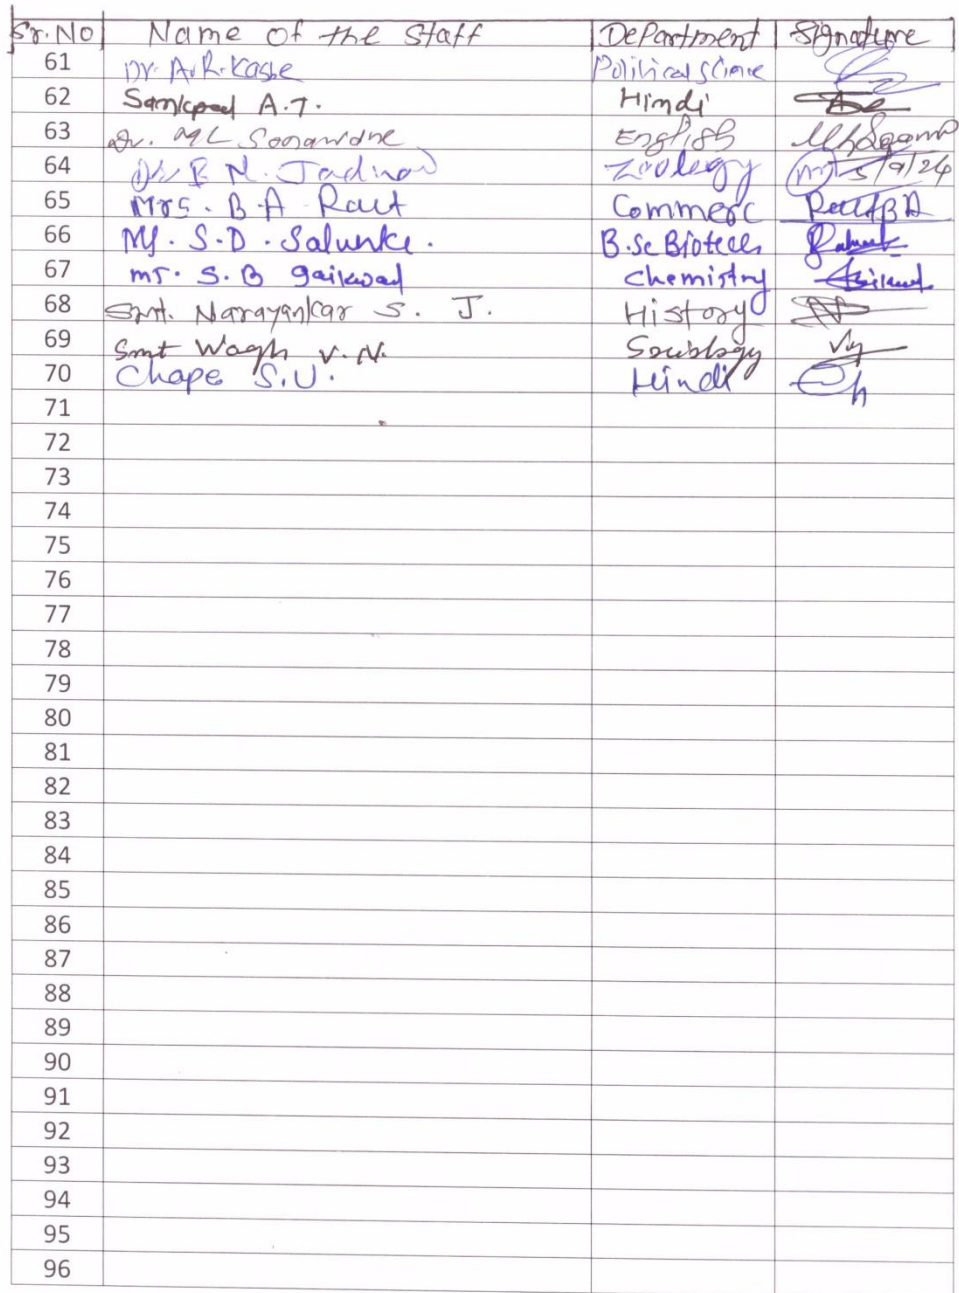 Sr.No Name of the Staff Department Signature
61 Dr. A.R. Kasbe Political Science
62 A.T. Hindi
63 Dr. ML Sonawane English
64 Dr B N. Jadhav Zoology 5/9/24
65 Mrs. B.A Raut Commerc Raut BA
66 Mr. S.D. Salunke. B.Sc Biotech
67 mr. S.B gaikwad chemistry
68 Smt. Narayankar S. J. History
69 Smt Wagh V.N. Sociology
70 Chape S.U. Hindi
71
72
73
74
75
76
77
78
79
80
81
82
83
84
85
86
87
88
89
90
91
92
93
94
95
96